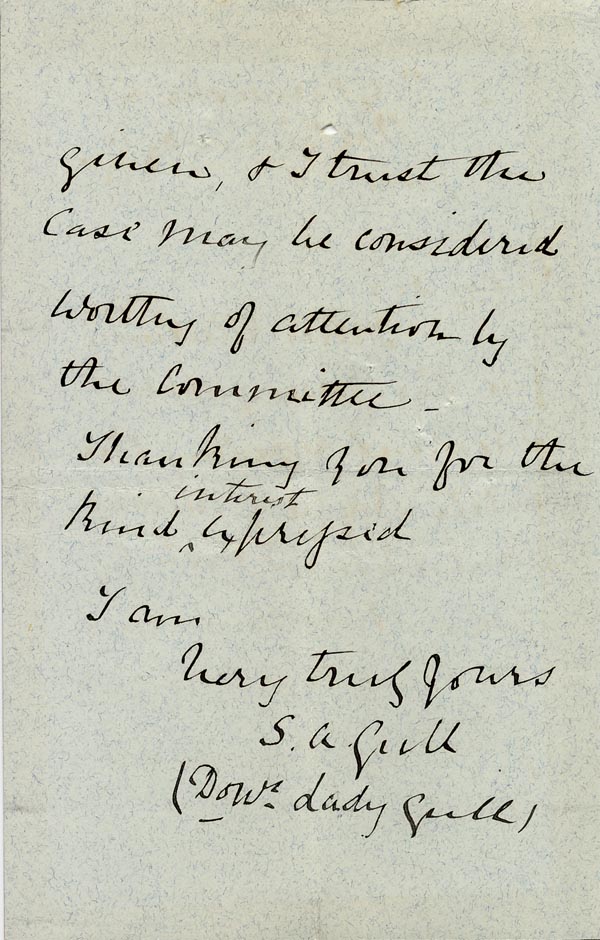 given, & I trust the
Case may be considered
worthy of attention by
the Committee –
Thanking you for the
kind ^interest expressed
I am
Very truly yours
S. A Gull
(Dowr. Lady Gull)